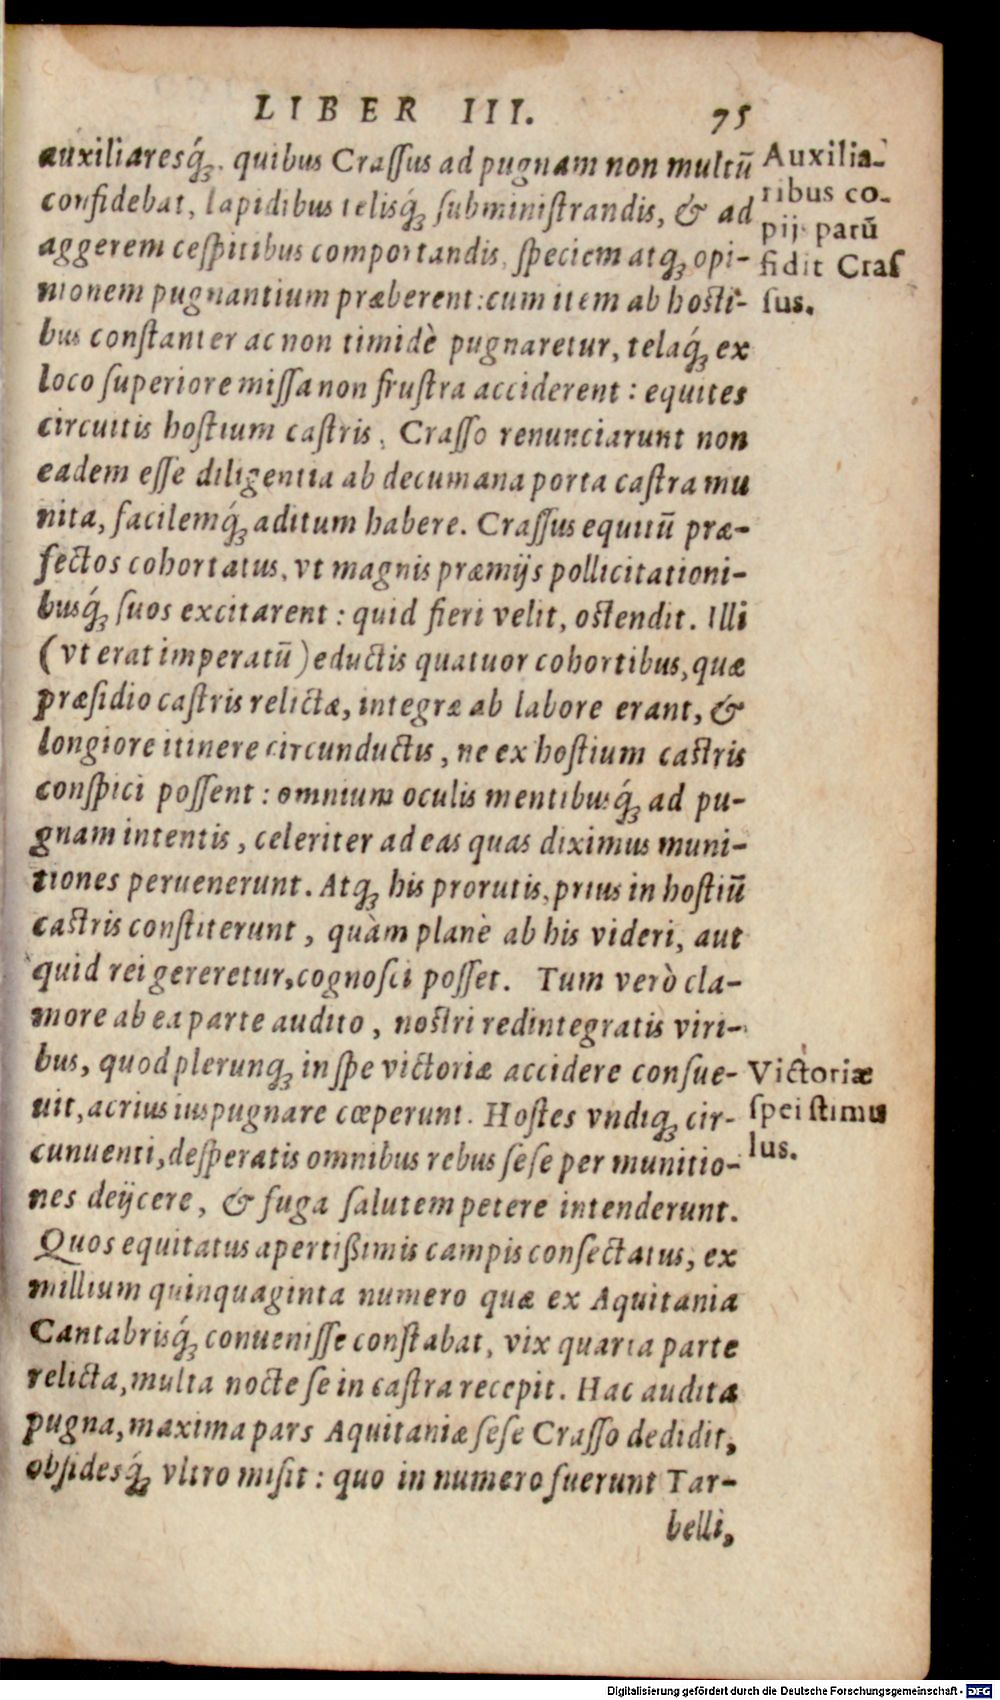 LIBER III. 75
auxiliaresq́ꝫ, quibus Craſſus ad pugnam non multũ
confidebat, lapidibus telisq́ꝫ ſubminiſtrandis, & ad
aggerem ceſpitibus comportandis, ſpeciem atqꝫ opi-
nionem pugnantium præberent: cum item ab hoſti-
bus conſtanter ac non timidè pugnaretur, telaq́ꝫ ex
loco ſuperiore miſſa non fruſtra acciderent: equites
circuitis hoſtium caſtris, Craſſo renunciarunt non
eadem eſſe diligentia ab decumana porta caſtra mu
nita, facilemq́ꝫ aditum habere. Craſſus equitũ præ-
fectos cohortatus, vt magnis præmijs pollicitationi-
busq́ꝫ ſuos excitarent: quid fieri velit, oſtendit. Illi
(vt erat imperatũ) eductis quatuor cohortibus, quæ
præſidio caſtris relictæ, integræ ab labore erant, &
longiore itinere circunductis, ne ex hoſtium caſtris
conſpici poſſent: omnium oculis mentibusq́ꝫ ad pu-
gnam intentis, celeriter ad eas quas diximus muni-
tiones peruenerunt. Atqꝫ his prorutis, prius in hoſtiũ
caſtris conſtiterunt, quàm planè ab his videri, aut
quid rei gereretur, cognoſci poſſet. Tum verò cla-
more ab ea parte audito, noſtri redintegratis viri-
bus, quod plerunqꝫ in ſpe victoriæ accidere conſue-
uit, acrius impugnare cœperunt. Hoſtes vndiqꝫ cir-
cunuenti, deſperatis omnibus rebus ſeſe per munitio-
nes deijcere, & fuga ſalutem petere intenderunt.
Quos equitatus apertißimis campis conſectatus, ex
millium quinquaginta numero quæ ex Aquitania
Cantabrisq́ꝫ conueniſſe conſtabat, vix quarta parte
relicta, multa nocte ſe in caſtra recepit. Hac audita
pugna, maxima pars Aquitaniæ ſeſe Craſſo dedidit,
obſidesq́ꝫ vltro miſit: quo in numero fuerunt Tar-
belli,
Auxilia-
ribus co-
pijs parũ
fidit Craſ
ſus.
Victoriæ
ſpei ſtimu
lus.
Digitalisierung gefördert durch die Deutsche Forschungsgemeinschaft - DFG